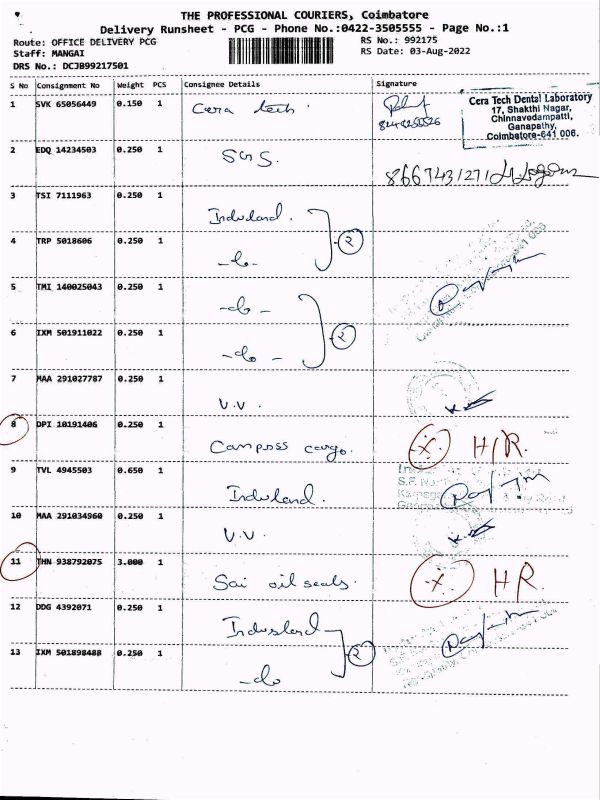 THE PROFESSIONAL COURIERS, Coimbatore
Delivery Runsheet - PCG - Phone No.:0422-3505555 - Page No.:1
Route: OFFICE DELIVERY PCG
Staff: MANGAI
DRS No.: DCJB99217501
RS No.: 992175
RS Date: 03-Aug-2022
S No Consignment No Weight PCS Consignee Details Signature
1 SVK 65056449 0.150 1 Cera tech
Cera Tech Dental Laboratory
17, Shakthi Nagar,
Chinnavedampatti,
Ganapathy,
Coimbatore-641 006.
2 EDQ 14234503 0.250 1 SGS.
8667431271
3 TSI 7111963 0.250 1 Indusland.
4 TRP 5018606 0.250 1 -do- 2
5 TMI 140025043 0.250 1 -do-
6 IXM 501911022 0.250 1 -do- 2
7 MAA 291027787 0.250 1 V.V.
8 DPI 10191406 0.250 1 Camposs cargo. x H/R.
9 TVL 4945503 0.650 1 Indusland.
10 MAA 291034960 0.250 1 V.V.
11 THN 938792075 3.000 1 Sai oil seals. x HR.
12 DDG 4392071 0.250 1 Indusland
13 IXM 501898488 0.250 1 -do 2